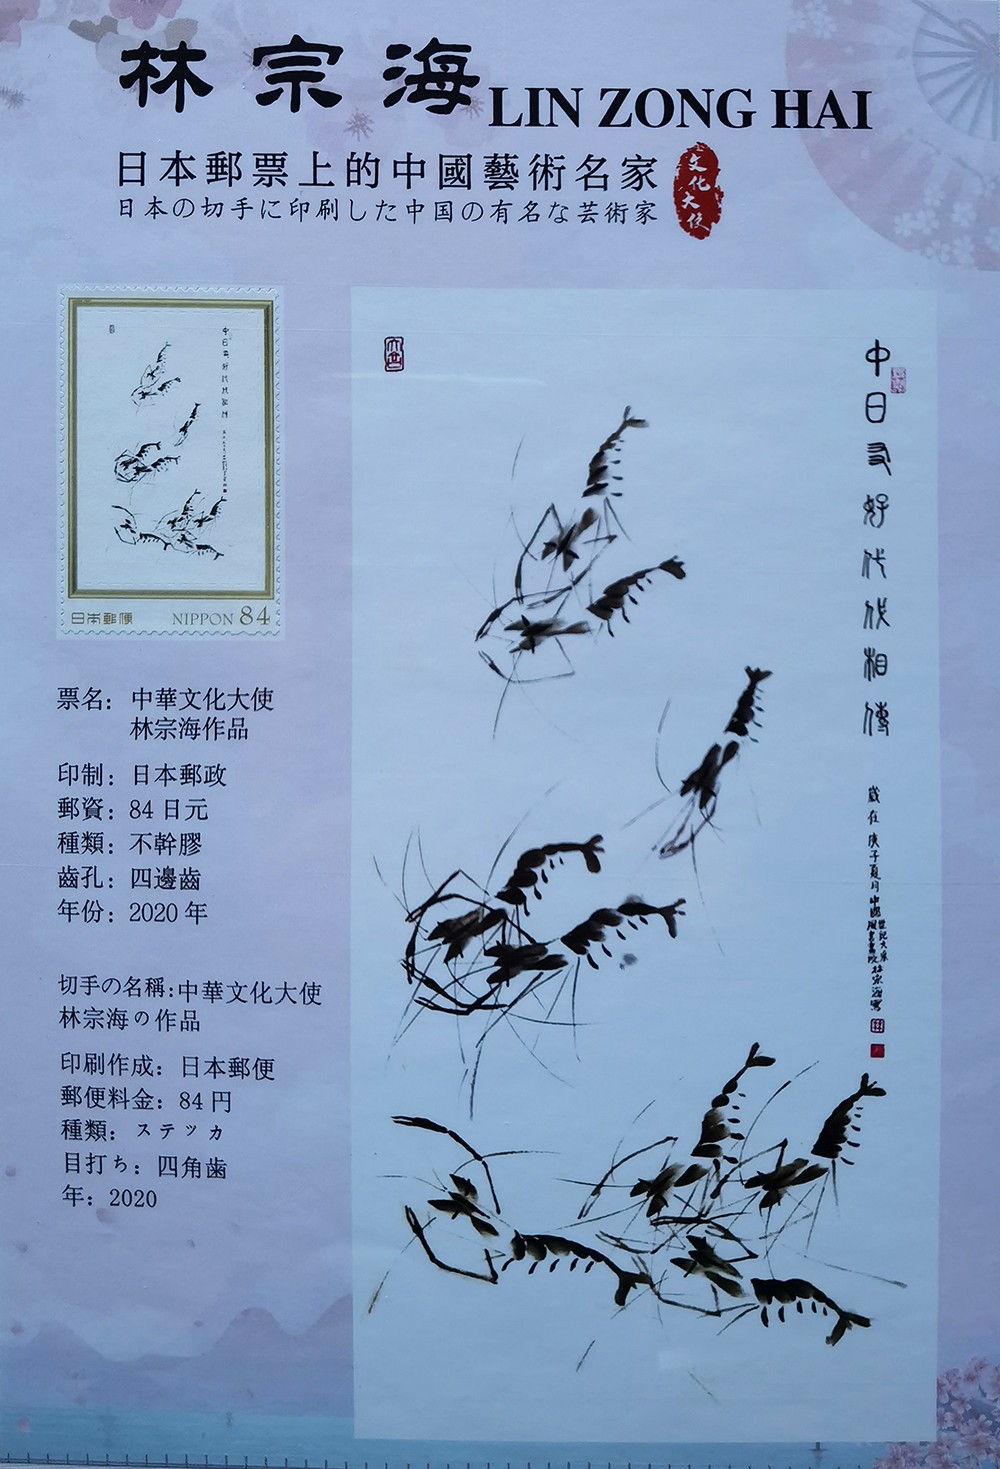 林宗海 LIN ZONG HAI
日本郵票上的中國藝術名家
日本の切手に印刷した中国の有名な芸術家
文化大使
日本郵便 NIPPON 84
票名：中華文化大使
林宗海作品
印制：日本郵政
郵資：84日元
種類：不幹膠
齒孔：四邊齒
年份：2020年
切手の名稱:中華文化大使
林宗海の作品
印刷作成：日本郵便
郵便料金：84円
種類：ステッカ
目打ち：四角歯
年：2020
中日友好代代相傳
歲在庚子夏月中國
林宗海寫